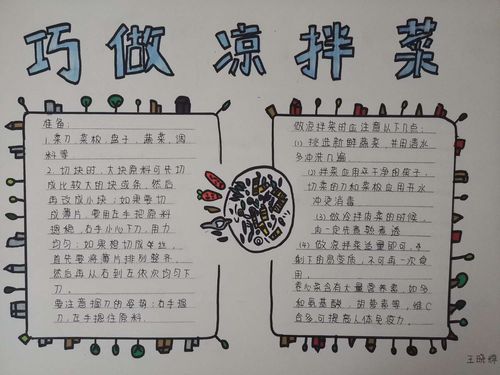 巧做 凉拌菜
准备:
1.菜刀、菜板、盘子、蔬菜、调
料等
2.切块时,大块原料可先切
成比较大的块或条,然后
再改成小块;如果要切
成薄片,要用左手把原料
摁稳,右手小心下刀,用力
均匀;如果想切成丝,
首先要将薄片排列整齐,
然后再从右到左依次均匀下
刀。
要注意握刀的姿势:右手握
刀,左手摁住原料.
做凉拌菜时应注意以下几点:
(1)挑选新鲜蔬菜,并用清水
多冲洗几遍
(2)拌菜应用卒干净的筷子,
切菜的刀和菜板应用开水
冲烫消毒
(3)做冷拌肉菜的时候,
肉一定先煮熟煮透
(4)做凉拌菜适量即可,
剩下的易变质,不可再一次食
用。
卷心菜含有大量营养素,如多
和氨基酸、胡萝素等,维C
含多,可提高人体免疫力。
王晓婷